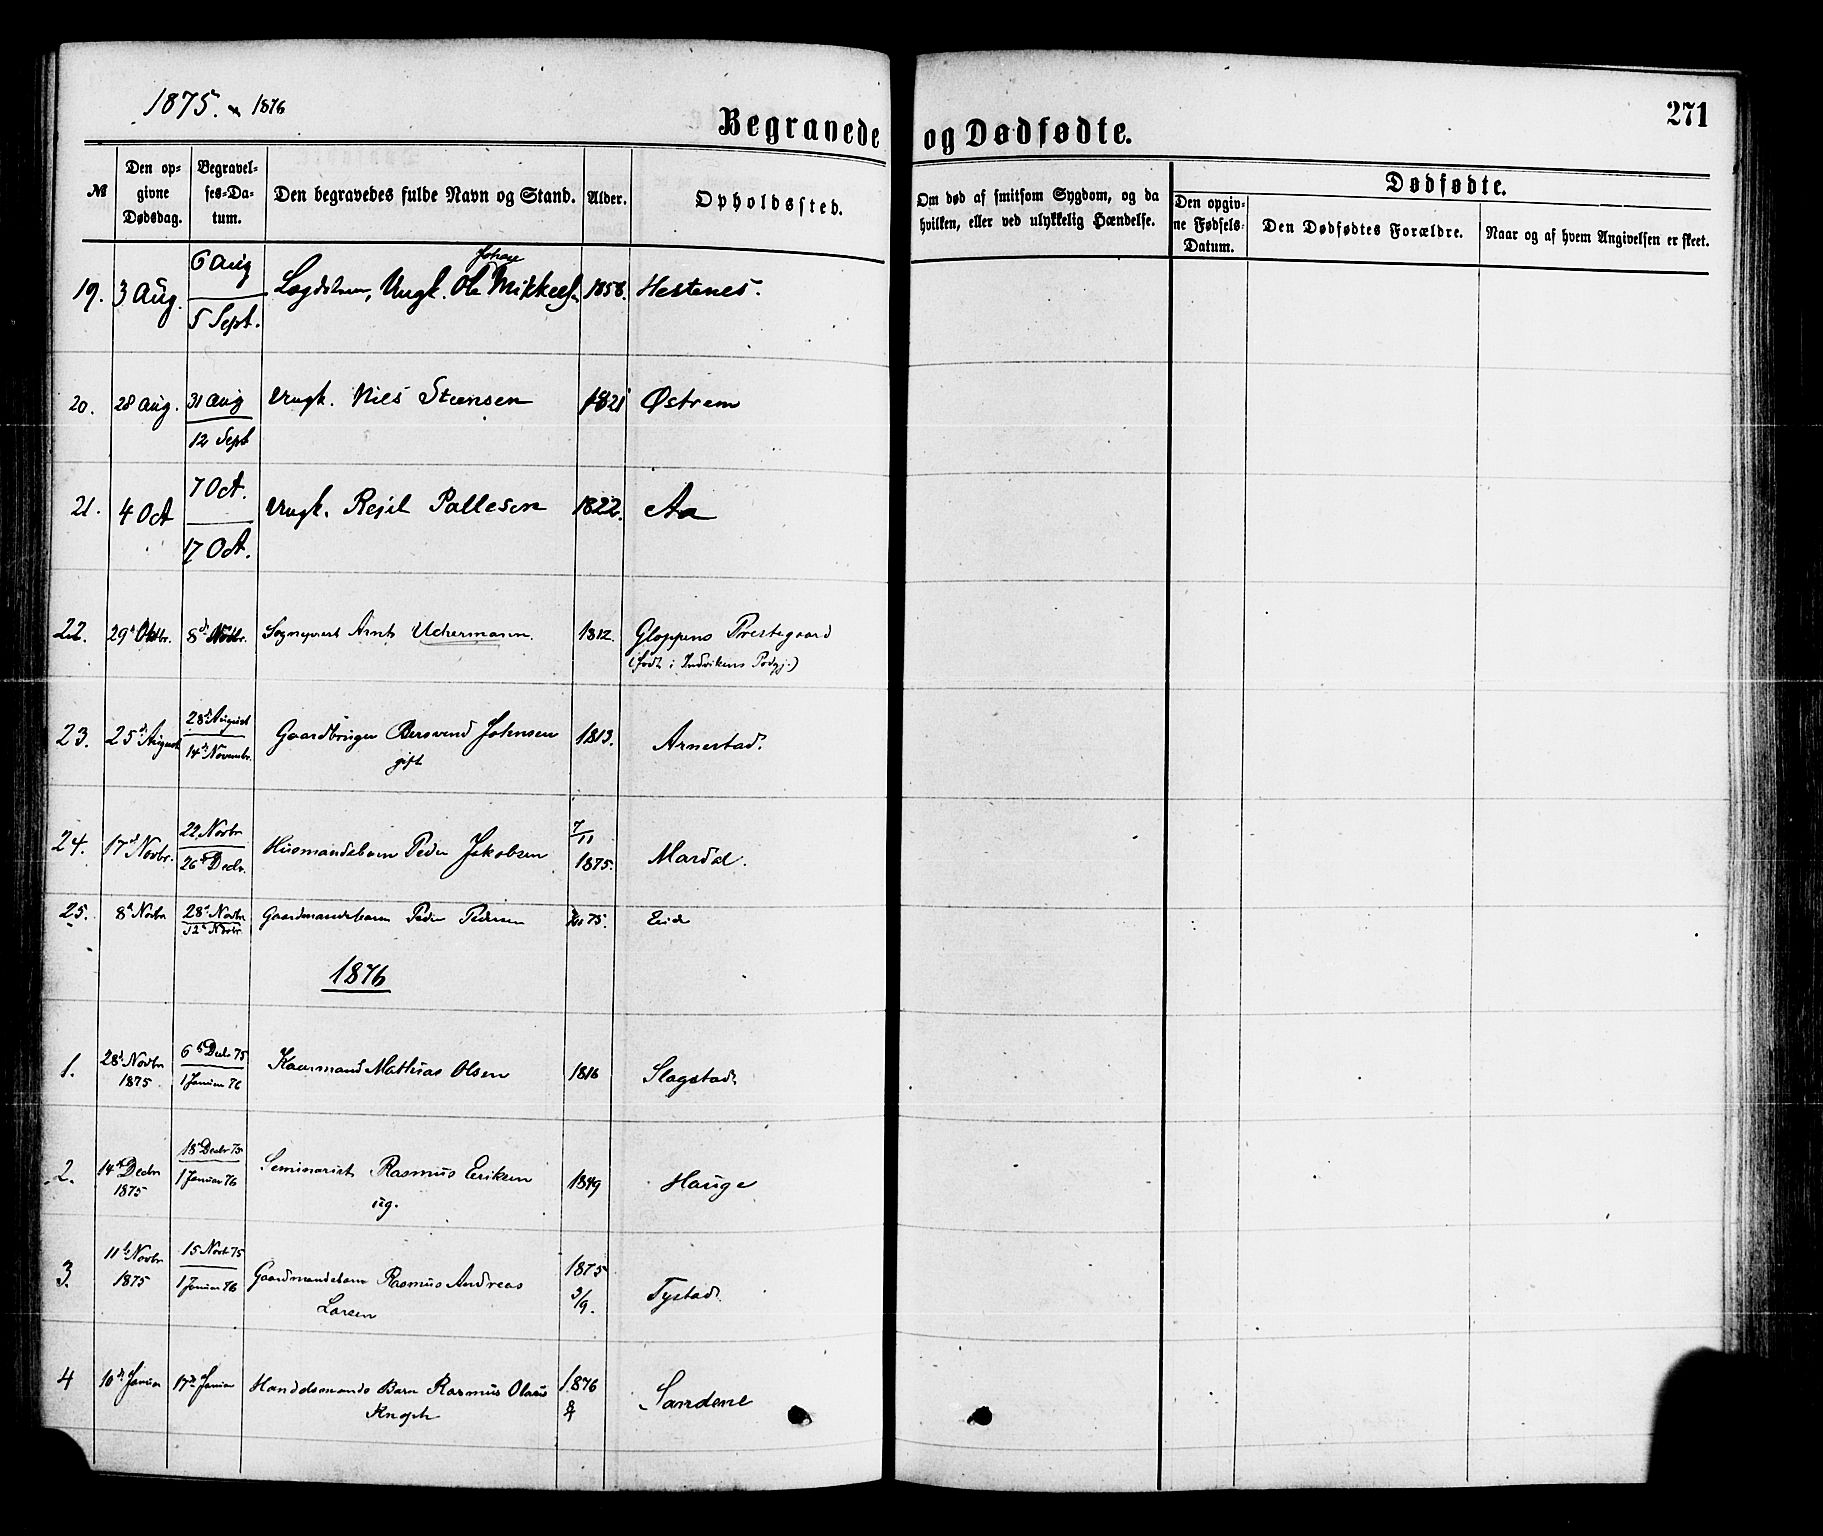 1875. - 1876
Begravede og Dødfødte.
271
№
Den opgivne Dødsdag.
Begravelses-Datum.
Den begravedes fulde Navn og Stand.
Alder.
Opholdssted.
Om død af smitsom Sygdom, og da hvilken, eller ved ulykkelig Hændelse.
Dødfødte.
Den opgivne Fødsels-Datum.
Den Dødfødtes Forældre.
Naar og af hvem Angivelsen er skeet.
19. 3 Aug. 6 Aug 5 Sept. Lægdslem, Ungk. Ole Johan Mikkels. 1858. Hestenes.
20. 28 Aug. 31 Aug 12 Sept Ungk. Nils Steensen 1821 Østrem
21. 4 Oct 7 Oct. 17 Oct. Ungk. Rejel Pallesen 1822. Aa
22. 29d Oktbr. 8d Novbr. Sogneprest Arnt Uchermann. 1812. Gloppens Prestegaard
(født i Indvikens Pgj.)
23. 25d August 28d August 14d Novembr. Gaardbruger Bersvend Johnsen 1813. Arnestad.
gift
24. 17d Novbr. 22 Novbr 26d Decbr. Husmandsbarn Peder Jakobsen 7/11 1875. Mardal.
25. 8d Novbr 28d Novbr 12d Novbr Gaardmandsbarn Peder Pedersen 75. Eide
1876
1. 28d Novbr 1875. 6d Decbr 75 1 Januar 76 Kaarmand Mathias Olsen 1816 Slagstad.
2. 14d Decbr 1875 18d Decbr 75 1 Januar 76 Seminarist Rasmus Eriksen 1849 Hauge
ug.
3. 11d Novbr 1875 15 Novb 75 1 Januar 76 Gaardmandsbarn Rasmus Andreas 1875 3/9. Tystad.
Larsen
4 10d Januar 17d Januar Handelsmands Barn Rasmus Olaus 1876 Sandene
Knoph